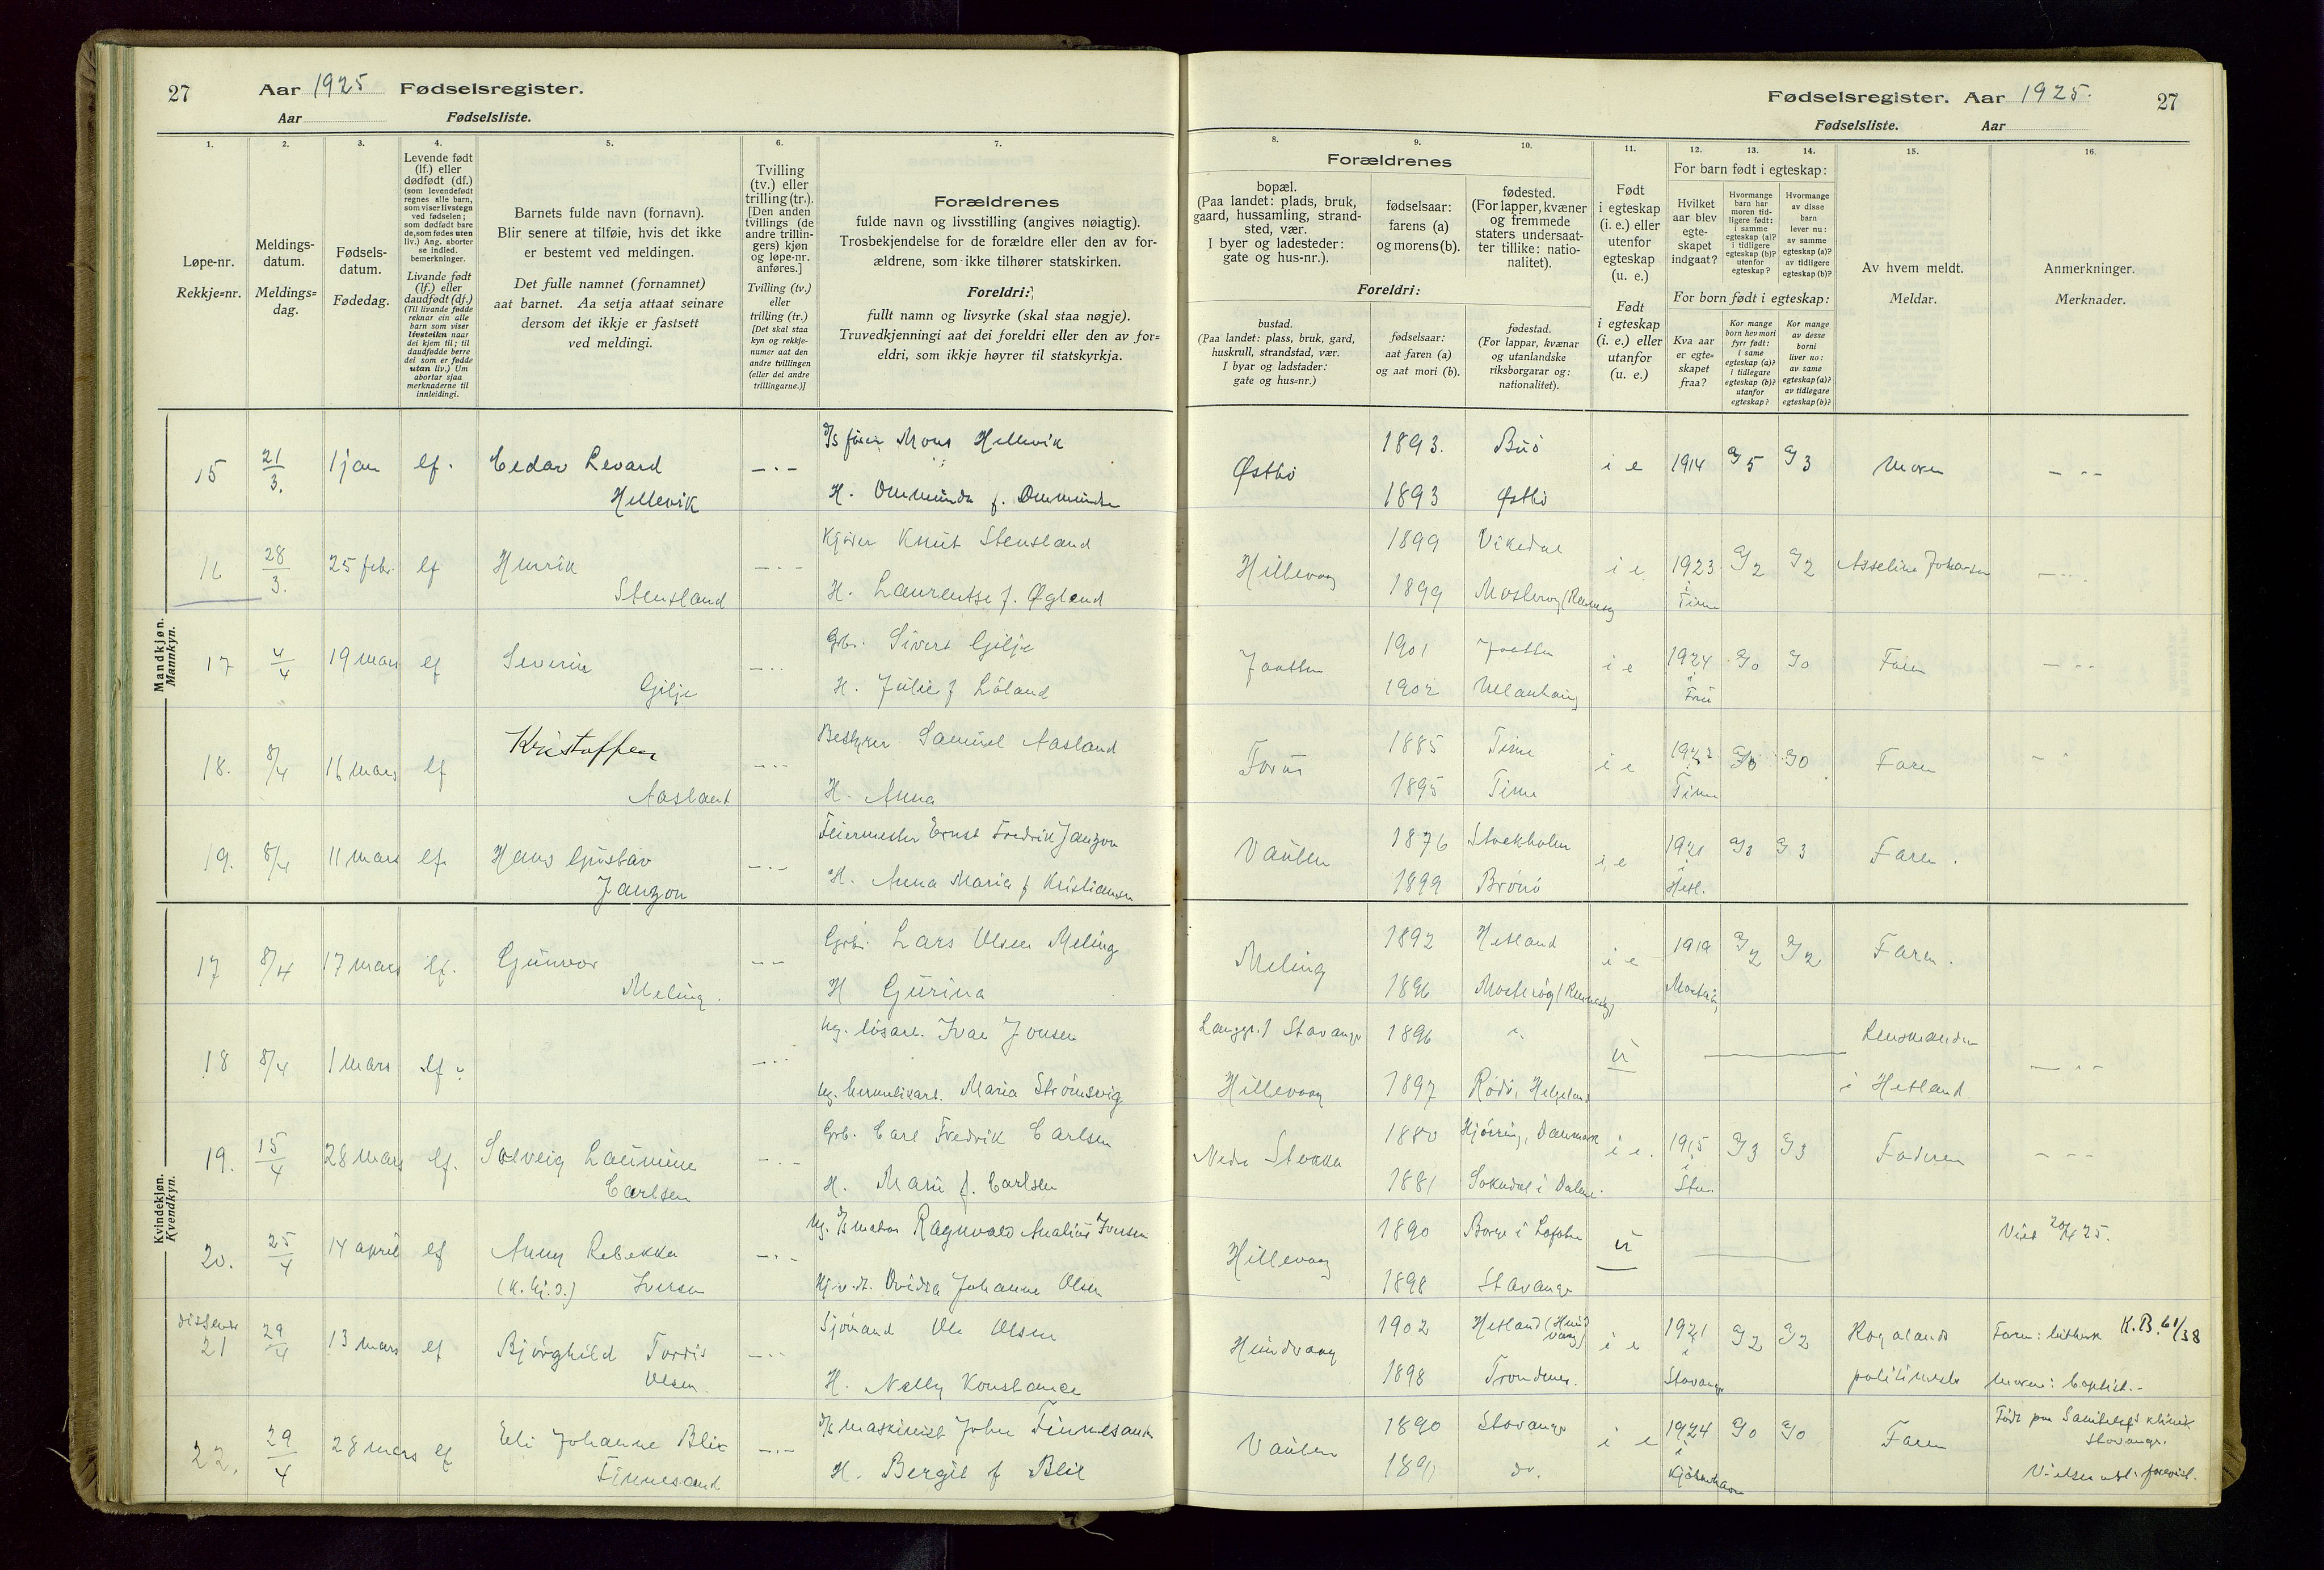 27 Aar 1925 Fødselsregister.
Aar Fødselsliste.
Fødselsregister. Aar 1925. 27
Fødselsliste. Aar
1. 2. 3. 4. 5. 6. 7.
Løpe-nr.
Rekkje=nr.
Meldings-
datum.
Meldings=
dag.
Fødsels-
datum.
Fødedag.
Levende født
(lf.) eller
dødfødt (df.)
(som levendefødt
regnes alle barn,
som viser livstegn
ved fødselen;
som dødfødt bare
de, som fødes uten
liv.) Ang. aborter
se indled.
bemerkninger.
Livande født
(lf.) eller
daudfødt (df.)
(Til livande fødde
reknar ein alle
barn som viser
livsteikn naar
dei kjem til; til
daudfødde berre
dei som er fødde
utan liv.) Um
abortar sjaa
merknaderne til
innleidingi.
Barnets fulde navn (fornavn).
Blir senere at tilføie, hvis det ikke
er bestemt ved meldingen.
Det fulle namnet (fornamnet)
aat barnet. Aa setja attaat seinare
dersom det ikkje er fastsett
ved meldingi.
Tvilling
(tv.) eller
trilling (tr.).
[Den anden
tvillings (de
andre trillin-
gers) kjøn
og løpe-nr.
anføres.]
Tvilling (tv.)
eller
trilling (tr.)
[Det skal staa
kyn og rekkje-
numer aat den
andre tvillingen
(eller dei andre
trillingarne.)]
Forældrenes
fulde navn og livsstilling (angives nøiagtig).
Trosbekjendelse for de forældre eller den av for-
ældrene, som ikke tilhører statskirken.
Foreldri:
fullt namn og livsyrke (skal staa nøgje).
Truvedkjenningi aat dei foreldri eller den av for=
eldri, som ikkje høyrer til statskyrkja.
8. 9. 10. 11. 12. 13. 14. 15. 16.
Forældrenes
bopæl.
(Paa landet: plads, bruk,
gaard, hussamling, strand-
sted, vær.
I byer og ladesteder:
gate og hus-nr.).
fødselsaar:
farens (a)
og morens (b).
fødested.
(For lapper, kvæner
og fremmede
staters undersaat-
ter tillike: natio-
nalitet).
Foreldri:
bustad.
(Paa landet: plass, bruk, gard,
huskrull, strandstad, vær.
I byar og ladstader:
gate og hus=nr.)
fødselsaar:
aat faren (a)
og aat mori (b).
fødestad.
(For lappar, kvænar
og utanlandske
riksborgarar og:
nationalitet).
Født
i egteskap
(i. e.) eller
utenfor
egteskap
(u. e.)
Født
i egteskap
(i. e.) eller
utanfor
(u. e.)
For barn født i egteskap:
Hvilket
aar blev
egte-
skapet
indgaat?
Hvormange
barn har
moren tid-
ligere født:
i samme
egteskap (a)?
i tidligere
egteskap (b)?
utenfor
egteskap?
Hvormange
av disse
barn
lever nu:
av samme
egteskap (a)?
av tidligere
egteskap (b)?
For born født i egteskap:
Kva aar
er egte=
skapet
fraa?
Kor mange
born hev mori
fyrr født:
i same
egteskap (a)?
i tidlegare
egteskap (b)?
utanfor
egteskap?
Kor mange
av desse
borni
liver no:
av same
egteskap (a)?
av tidlegare
egteskap (b)?
Av hvem meldt.
Meldar.
Anmerkninger.
Merknader.
Mandkjøn.
Mannkyn.
15 21/3. 1 jan lf. Levard Mons Hellevik 1893. Buø
Hellevik H. f. Østbø 1893 Østbø i e 1914 5 3 Moren
16 28/3. 25 febr. lf Henrik Knut Stensland 1899 Vikedal
Stensland H. Laurentse f. Øgland Hillevaag 1899 i e 1923 i Time 2 2 Asseline Johansen
17 4/4 19 mars lf Severin Gbr. Sivert Gilje 1901 Jaatten
Gilje H. Julie f Löland Jaatten 1902 i e 1924 i 0 0 Faren
18. 8/4 16 mars lf Kristoffer Bestyrer Samuel Aasland 1885 Time
Aasland H. Anna Forus 1895 Time i e Time 0 Faren
19. 8/4 11 mars lf. Hans Gustav Feiermester Ernst Fredrik Janzon 1876 Stockholm
Janzon H. Anna Maria f Kristiansen Vaulen 1899 Brønø i e 1921 i Hetl. 3 3 Faren.
Kvindekjøn.
Kvendkyn.
17 8/4 17 mars lf. Gunvor Gbr. Lars Olsen Meling 1892 Hetland
Meling. H Gurina Meling 1896 i e 1919 2 2 Faren.
18 8/4 1 mars lf. Ug. løsarb. Ivar Jonsen Langgt. 1 Stavanger 1896
Ug. hermetikarb. Maria Strömsvig Hillevaag 1897 Rödö, Helgeland u Lensmanden
i Hetland.
19. 15/4 28 mars lf. Solveig Laumine Gbr. Carl Fredrik Carlsen 1880 Hjörring, Danmark
Carlsen H. Marie f. Carlsen Nedre Stokka 1881 Sokndal i Dalene. i e. 1915 i Stav. 3 3 Faderen
20. 25/4 14 april lf Anny Rebekka Ug. Ragnvald Analius Iversen 1890 Borge i Lofoten
Iversen Ovidia Johanne Olsen Hillevaag 1898 Stavanger u Viet 20/4 25.
21 29/4 13 mars lf Bjørghild Torris Sjömand Ole Olsen 1902 Hetland (Hundvaag)
Olsen H. Nelly Konstance Hundvaag 1898 Trondenes. i e 1921 i Stavanger 2 2 Rogalands
politimester Faren: luthersk K.B. 61/38
Moren: baptist.
22. 29/4 28 mars lf Eli Johanne Blix maskinist John Finnesand 1890 Stavanger
Finnesand H. Bergit f Blix Vaulen 1891 do. i e 1924 i Kjöbenhavn 0 0 Faren Født paa klinik
Stavanger.